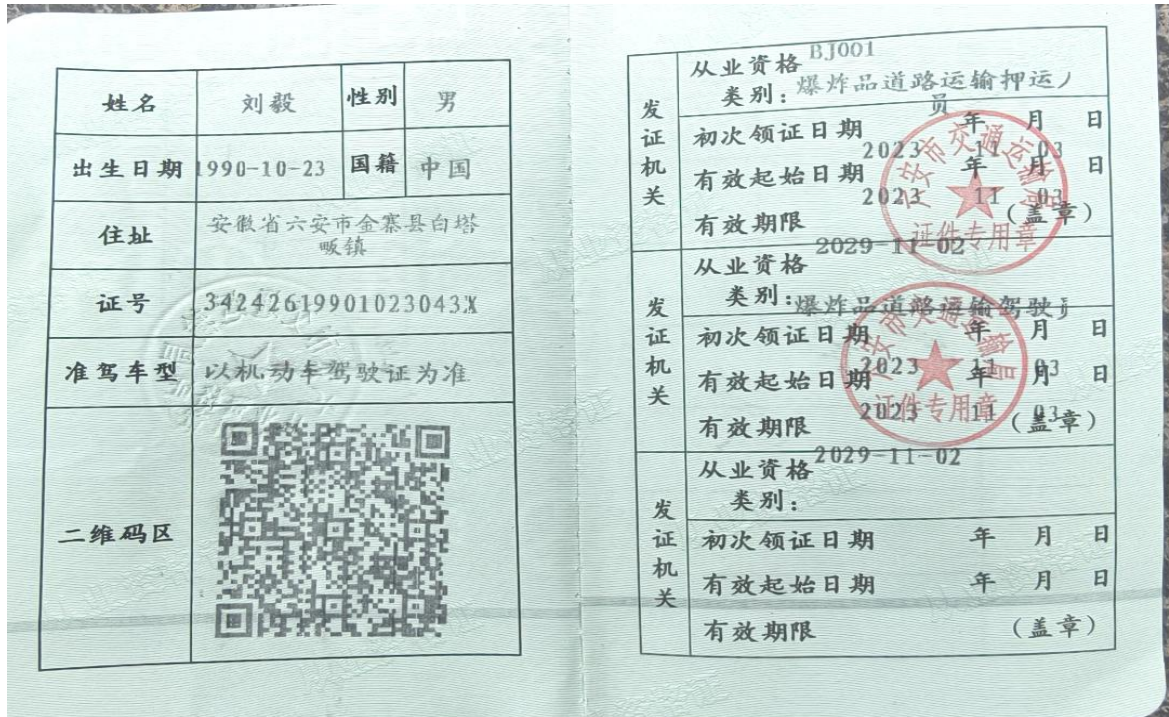 姓名 刘毅 性别 男
出生日期 1990-10-23 国籍 中国
住址 安徽省六安市金寨县白塔
畈镇
证号 34242619901023043X
准驾车型 以机动车驾驶证为准
二维码区
发证机关
从业资格 BJ001
类别：爆炸品道路运输押运
员
初次领证日期 年 月 日
2023 11 03
有效起始日期 年 月 日
2023 11 03
有效期限 (盖章)
2029-11-02
安市交通运输局
证件专用章
发证机关
从业资格
类别：爆炸品道路运输驾驶
初次领证日期 年 月 日
2023 11 03
有效起始日期 年 月 日
2023 11 03
有效期限 (盖章)
2029-11-02
安市交通运输局
证件专用章
发证机关
从业资格
类别：
初次领证日期 年 月 日
有效起始日期 年 月 日
有效期限 (盖章)